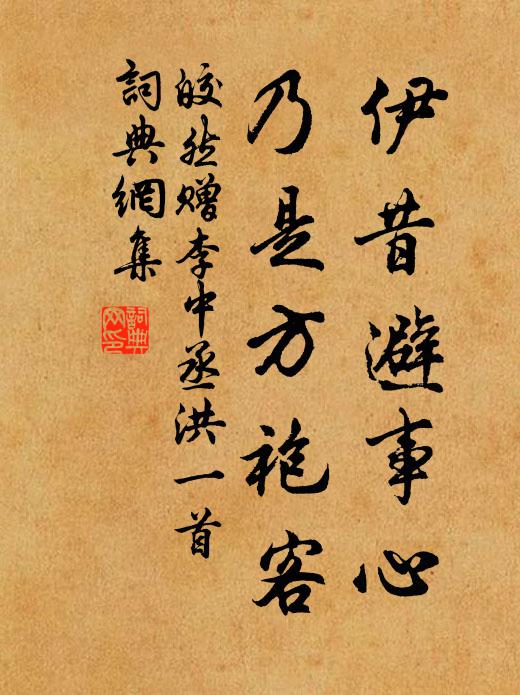 伊昔避事心
乃是方袍客
皎然赠李中丞洪一首
詞典網集
詞典網印